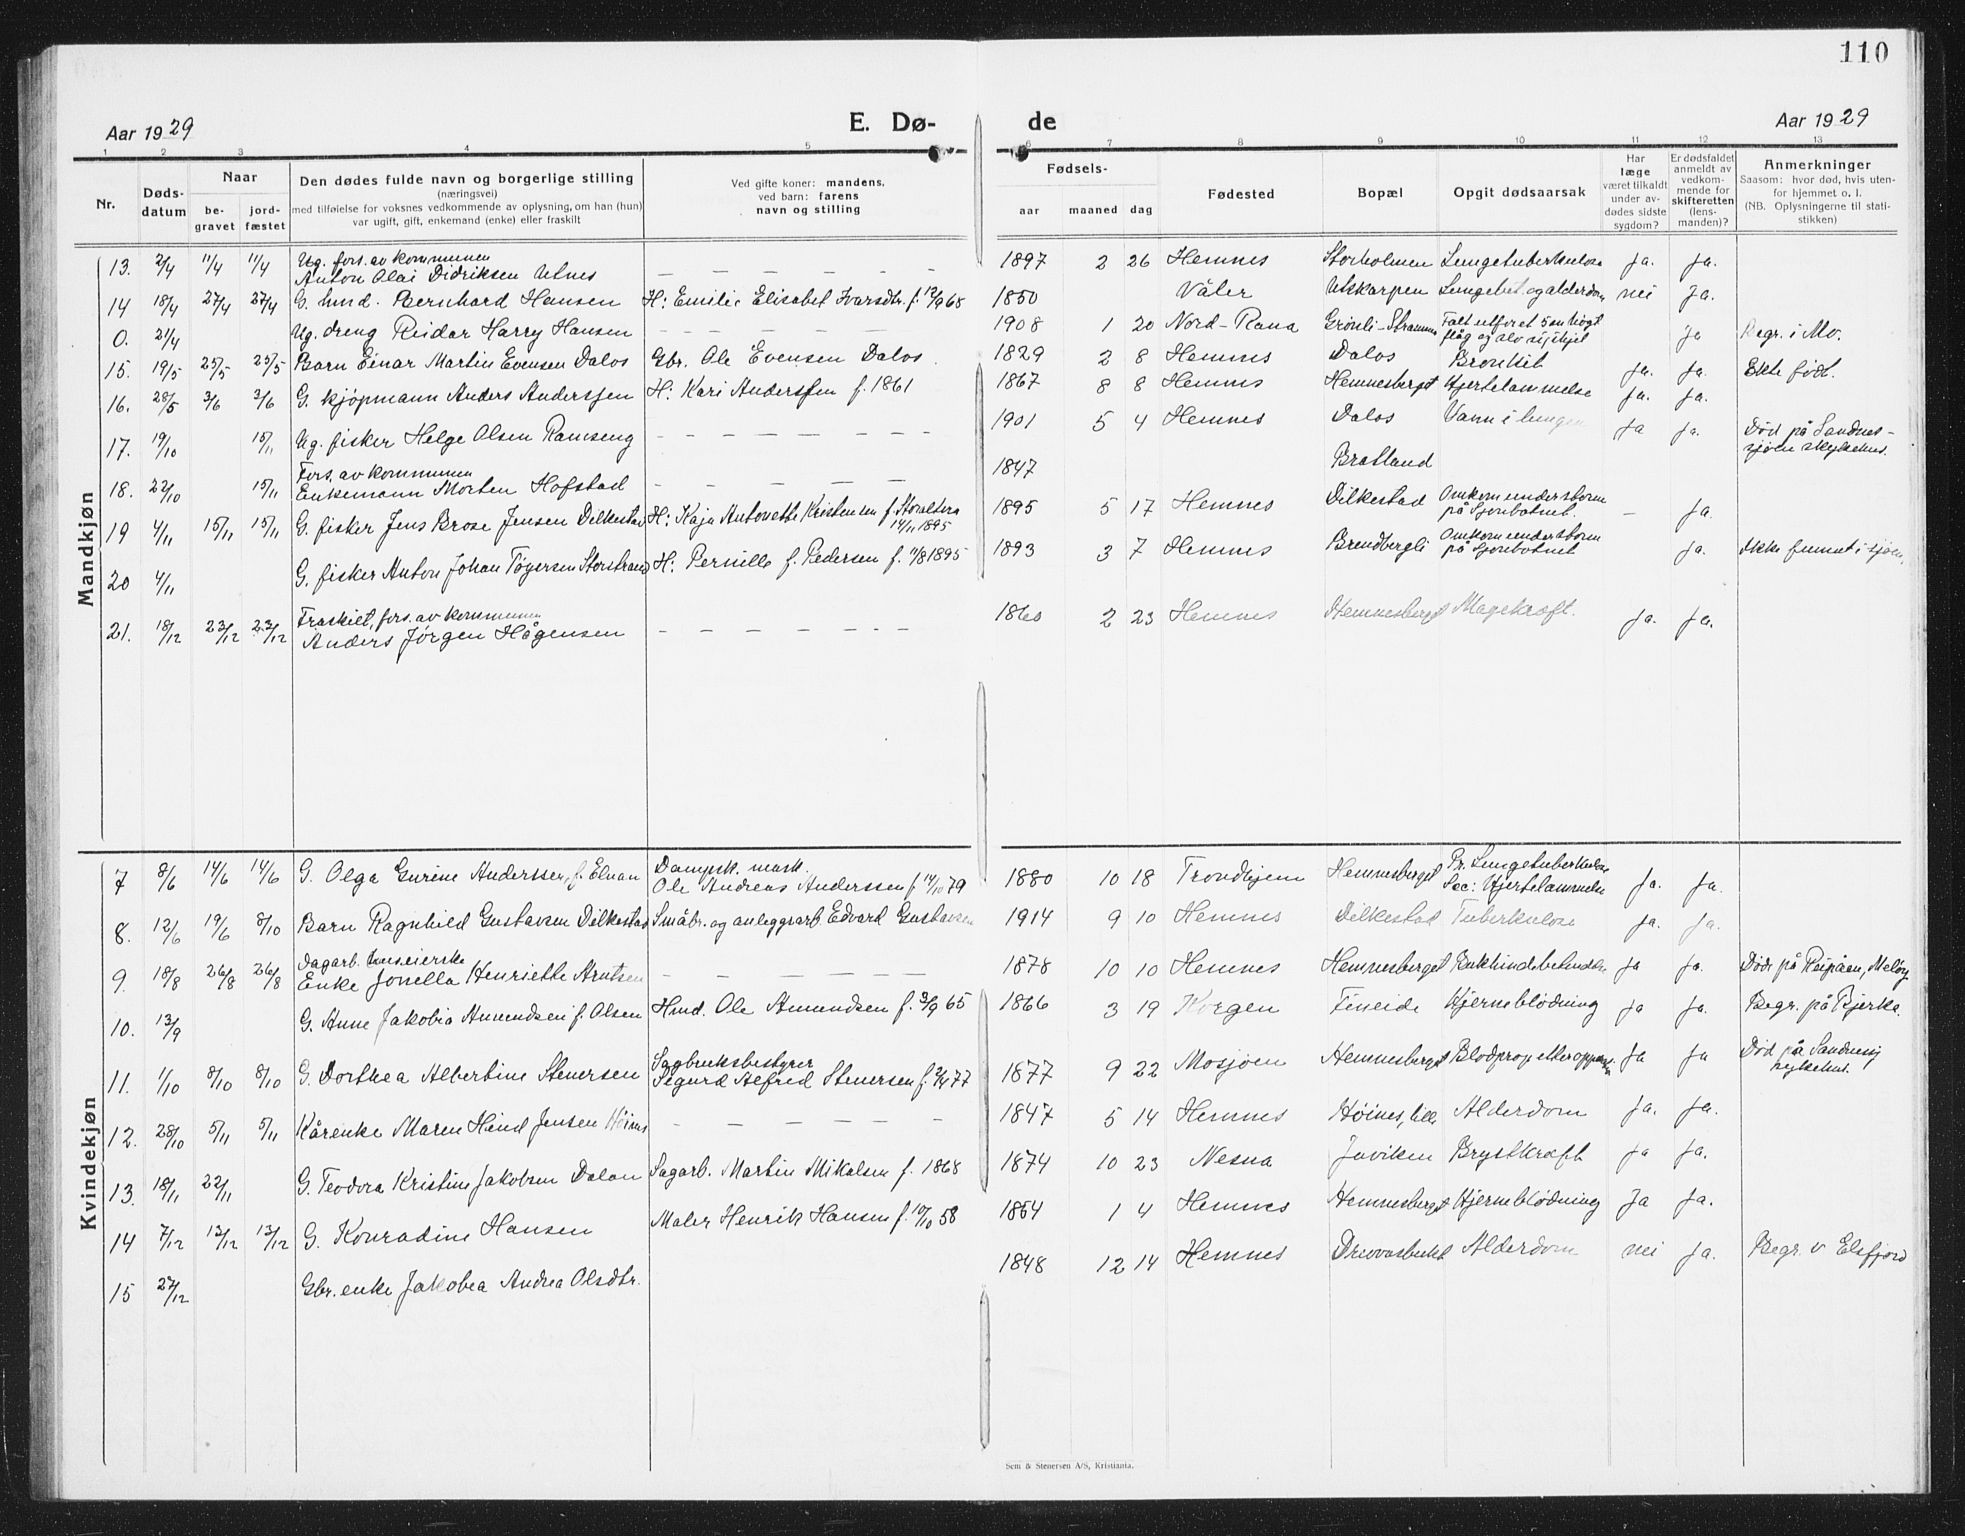 110
Aar 1929 E. Dø- de Aar 1929
1 2 3 4 5 6 7 8 9 10 11 12 13
Nr.
Døds-
datum
Naar
be-
gravet
jord-
fæstet
Den dødes fulde navn og borgerlige stilling
(næringsvei)
med tilføielse for voksnes vedkommende av oplysning, om han (hun)
var ugift, gift, enkemand (enke) eller fraskilt
Ved gifte koner: mandens,
ved barn: farens
navn og stilling
Fødsels-
aar maaned dag
Fødested
Bopæl
Opgit dødsaarsak
Har
læge
været tilkaldt
under av-
dødes sidste
sygdom?
Er dødsfaldet
anmeldt av
vedkom-
mende for
skifteretten
(lens-
manden)?
Anmerkninger
Saasom: hvor død, hvis uten-
for hjemmet o. l.
(NB. Oplysningerne til stati-
stikken)
Mandkjøn
13. 2/4 11/4 11/4 Ug. fors. av kommunen
Anton Olai Didriksen Utnes — — — — — — 1897 2 26 Hemnes Storholmen Lungetuberkulose ja. ja.
14 18/4 27/4 27/4 G. hmd. Bernhard Hansen H: Emilie Elisabet Ivarsdtr. f. 12/9 68 1850 Våler Utskarpen Lungebet. og alderdom nei Ja.
0. 21/4 Ug. dreng Reidar Harry Hansen — — — — — — 1908 1 20 Nord-Rana Grønli-Straumen Falt utfor et 5 m høgt
flåg og slo sig ihjel Ja Begr. i Mo.
15. 19/5 25/5 25/5 Barn Einar Martin Evensen Dalos Gbr. Ole Evensen Dalos. 1829 2 8 Hemnes Dalos Bronkit ja. ja. Ekte født.
16. 28/5 3/6 3/6 G. kjøpmann Anders Anderssen H: Kari Anderssen f. 1861 1867 8 8 Hemnes Hemnesberget Hjertelammelse ja. ja.
17. 19/10 15/11 Ug. fisker Helge Olsen Ramseng — — — — — — 1901 5 4 Hemnes Dalos Vann i lungen ja ja. Død på Sandnes-
sjøen sykehus.
18. 22/10 15/11 Fors. av kommunen
Enkemann Morten Hofstad — — — — — — 1847 Bratland
19 4/11 15/11 15/11 G. fisker Jens Brose Jensen Dilkestad H: Kaja Antonette Kristensen f. Storltera
14/11 1895 1895 5 17 Hemnes Dilkestad Omkom under storm
på Sjonbotnet. – ja.
20 4/11 G. fisker Anton Johan Tøgersen Storstrand H: Pernille f. Pedersen f. 11/8 1895 1893 3 7 Hemnes Brendbergli Omkom under storm
på Sjonbotnet ja. Ikke funnet i sjøen.
21. 18/12 23/12 23/12 Fraskilt, fors. av kommunen
Anders Jørgen Hågensen — — — — — — 1860 2 23 Hemnes Hemnesberget Magekræft. ja. ja.
Kvindekjøn
7 8/6 14/6 14/6 G. Olga Gurine Anderssen, f. Elnan Dampsk. mask.
Ole Andreas Anderssen f. 14/10 79 1880 10 18 Trondhjem Hemnesberget Pr. Lungetuberkulose
Sec: Hjertelammelse ja. ja.
8. 12/6 19/6 8/10 Barn Ragnhild Gustavsen Dilkestad Småbr. og anleggsarb. Edvard Gustavsen 1914 9 10 Hemnes Dilkestad Tuberkulose ja. ja.
9. 18/8 26/8 26/8 Dagarb. huseierske
Enke Jonella Henriette Arntsen — — — — — 1878 10 10 Hemnes Hemnesberget Bukhindebetendelse ja ja. Død på Reipåen, Meløy
10. 13/9 G. Anne Jakobia Amundsen f. Olsen Hmd. Ole Amundsen f. 3/9 65 1866 3 19 Korgen Fineide Hjerneblødning ja ja. Begr. på Bjerka.
11. 1/10 8/10 8/10 G. Dorthea Albertine Stenersen Sagbruksbestyrer
Sigurd Alfred Stenersen f. 2/4 77 1877 9 22 Mosjøen Hemnesberget Blodprop etter operasjon Ja Ja Død på Sandnessj
sykehus.
12. 28/10 5/11 5/11 Kårenke Maren Hind Jensen Høines — — — — — 1847 5 14 Hemnes Høines, lille Alderdom ja. ja.
13. 18/11 22/11 G. Teodora Kristine Jakobsen Dalan Sagarb. Martin Mikalsen f. 1868 1874 10 23 Nesna Juviken Brystkræft ja ja.
14 7/12 13/12 13/12 G. Konradine Hansen Maler Henrik Hansen f. 10/10 58 1854 1 4 Hemnes Hemnesberget Hjerneblødning Ja Ja.
15 27/12 Gbr. enke Jakobea Andrea Olsdtr. 1848 12 14 Hemnes Drevvasbukt Alderdom nei ja. Begr. v Elsfjord
Sem & Stenersen A/S, Kristiania.